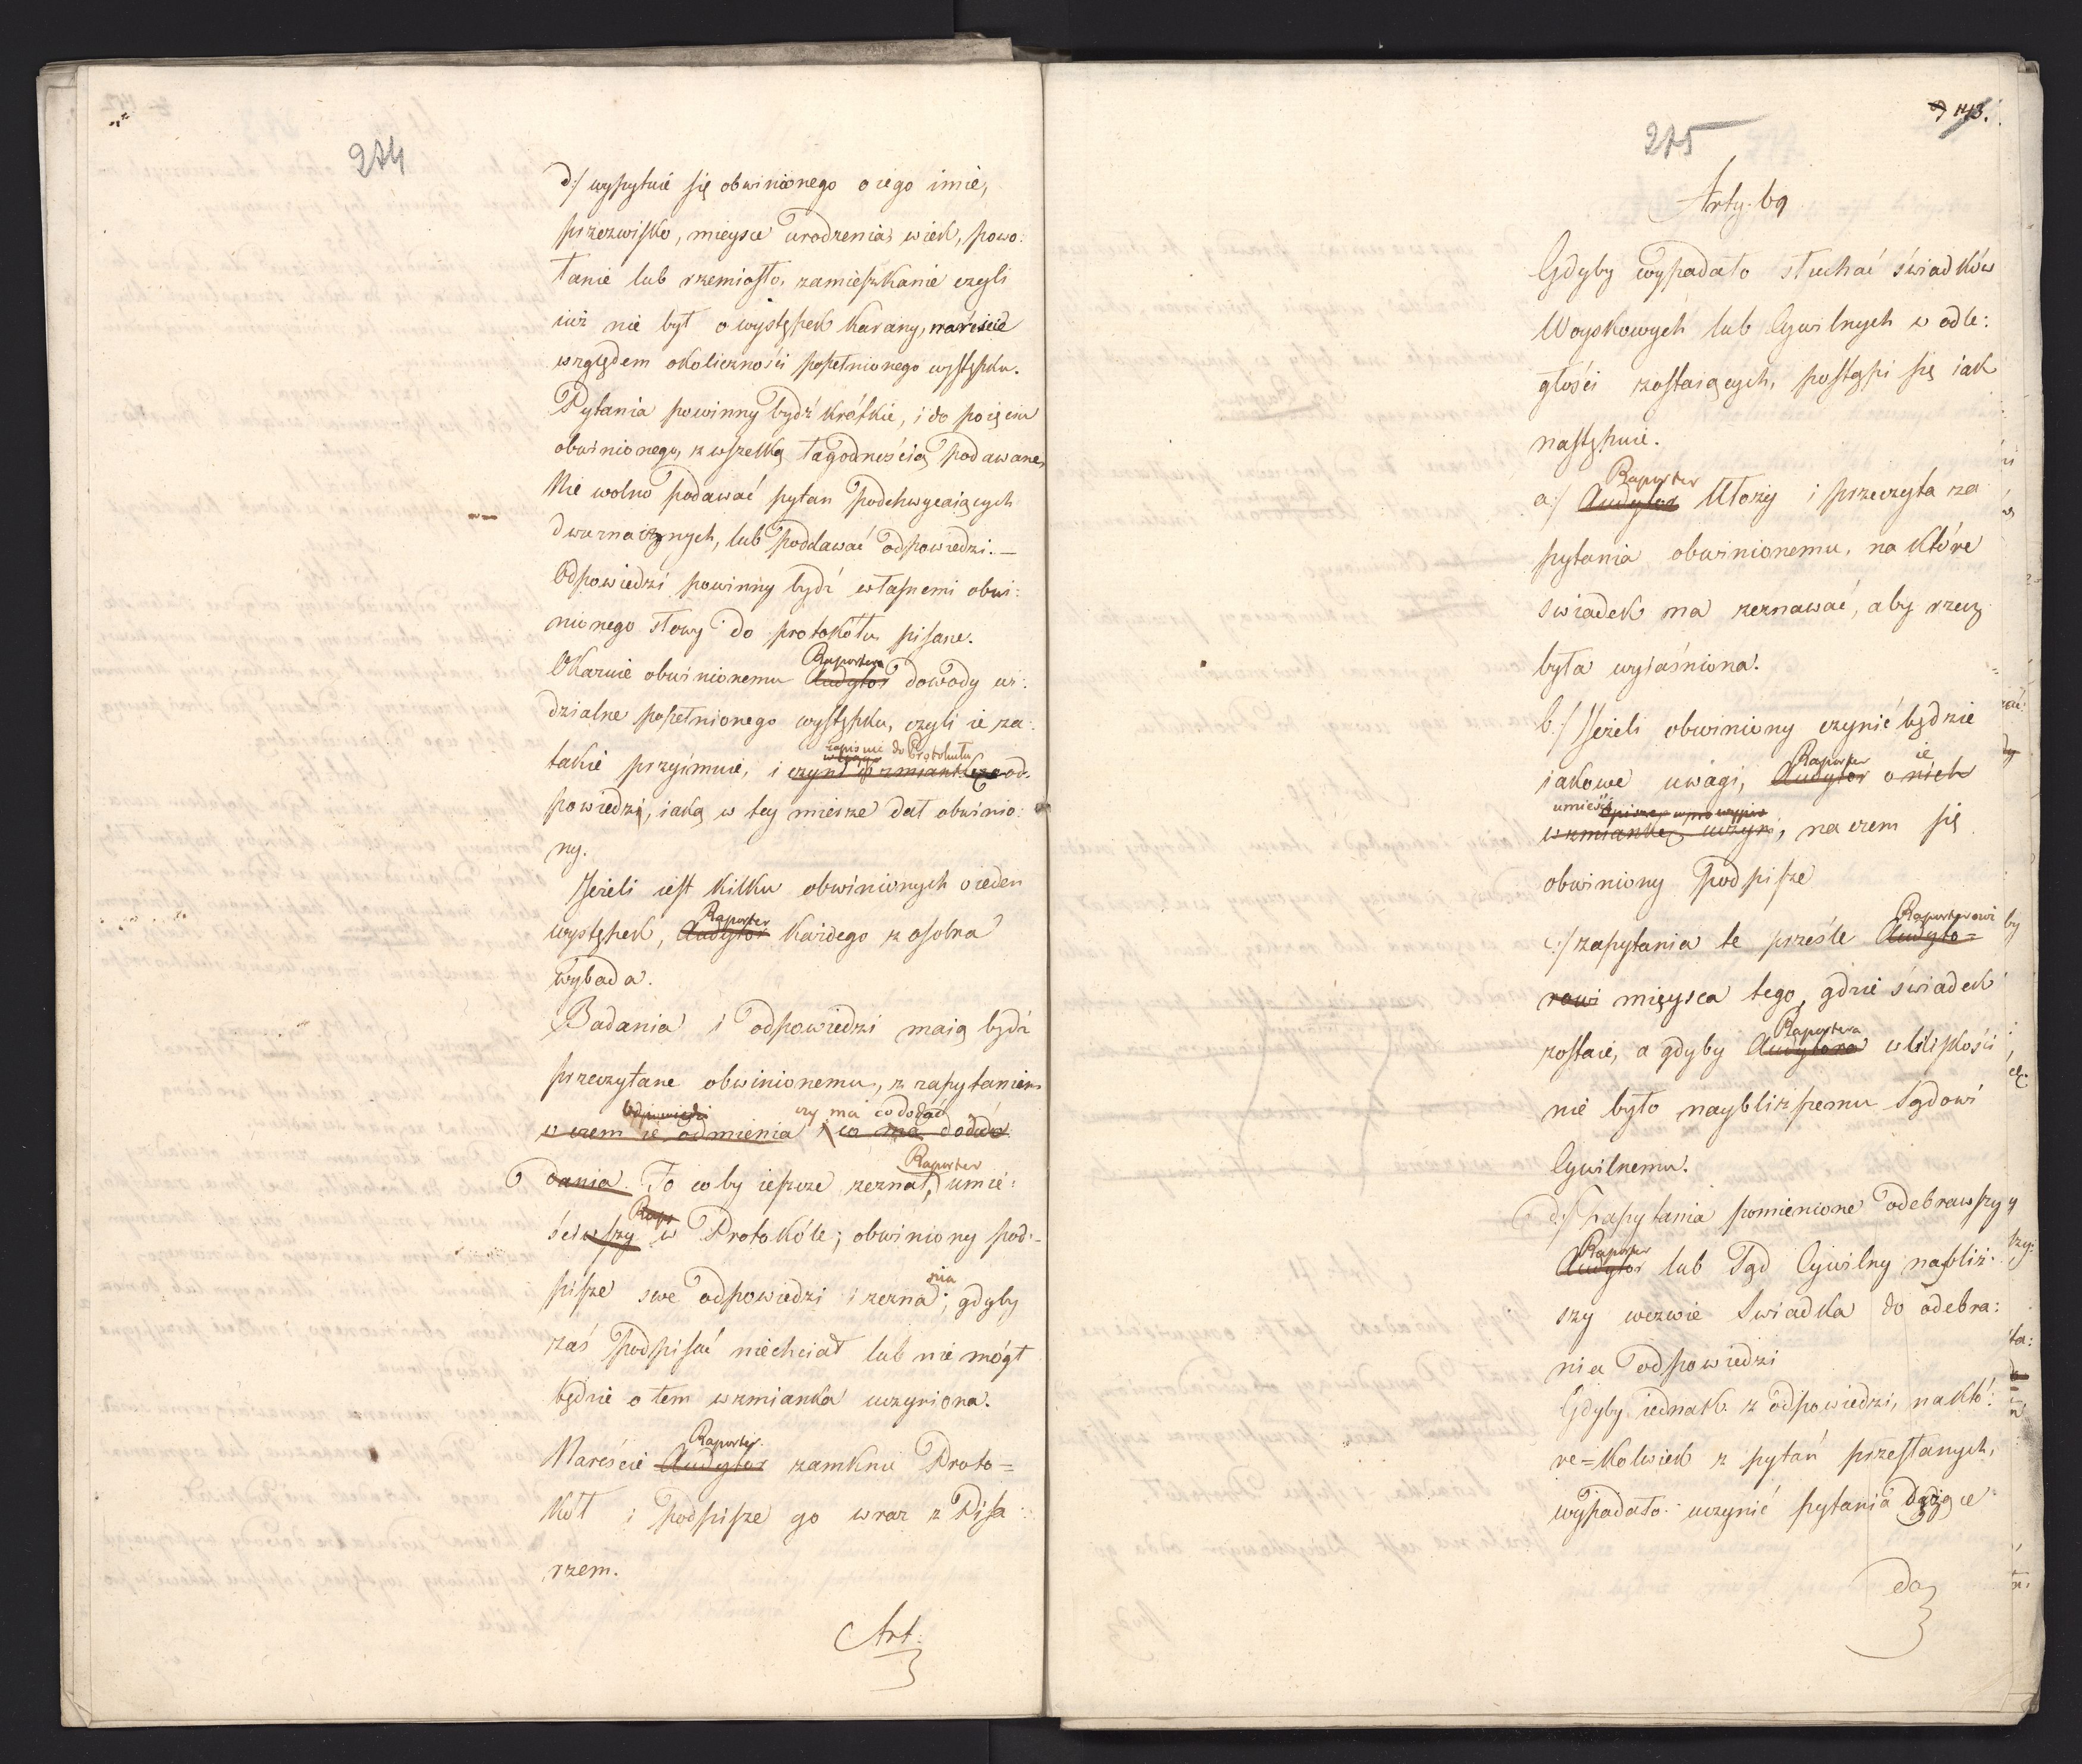 274
d:/ wypytuie się obwinionego o iego imie,
przezwisko, mieysce urodzenia, wiek, powo:
łanie lub rzemiosło, zamieszkanie czyli
iuż nie był o występek karany, nareście
względem okoliczności popełnionego występku.
Pytania powinny bydź krótkie, i do poięcia
obwinionego, z wszelką łagodnością podawane,
Nie wolno podawać pytan podchwycaiących
dwuznacznych, lub poddawać odpowiedzi. —
Odpowiedzi powinny bydź własnemi obwi:
nionego słowy do protokołu pisane.
Raportera
Okazuie obwinionemu Audytor dowody wi:
dzialne popełnionego występku, czyli ie za
zapisuie do Protokułu
takie przyimuie, i czyni wzmiankę od:
powiedzi, iaką w tey mierze dał obwinio:
ny.
Jeżeli iest kilku obwinionych o ieden
Raporter
występek, Audytor każdego z osobna
wybada.
Badania i odpowiedzi maią bydź
przeczytane obwinionemu, z zapytaniem
odpowiedzi czy ma co dodać
w czem ie odmienia i co ma dodo
Raporter
dania. To coby ieszcze zeznał, umie:
Rapr
ściwszy w Protokóle; obwiniony pod:
nia
pisze swe odpowiedzi i zezna; gdyby
zaś podpisać niechciał lub nie mógł
będzie o tem wzmianka uczyniona.
Raporter
Nareście Audytor zamknie Proto=
kół i podpisze go wraz z Pisa:
rzem.
Art:
143.
275
Arty. 69
Gdyby wypadało słuchać świadków
Woyskowych lub Cywilnych w odle:
głości zostaiących, postąpi się iak
następuie.
Raporter
a:/ Audytor Ułoży i przeczyta za
pytania obwinionemu, na które
swiadek ma zeznawać, aby rzecz
była wyiaśniona.
b:/ Jeżeli obwiniony czynić będzie
Raporter ie
iakowe uwagi, Audytor o nich
umieści
wzmiankę uczyni, na czem się
obwiniony podpisze
Raporterowi
c:/ zapytania te prześle Audyto=
rowi mieysca tego, gdzie świadek
Raportera
zostaie, a gdyby Audytora w bliskości
nie było naybliższemu Sądowi
Cywilnemu.
d:/ Zapytania pomienione odebrawszy
Raporter
Audytor lub Sąd Cywilny najbliż:
szy wezwie Swiadka do odebra:
nia odpowiedzi
Gdyby iednak z odpowiedzi, na któ:
re=kolwiek z pytań przesłanych,
wypadało uczynić pytania dążące
do